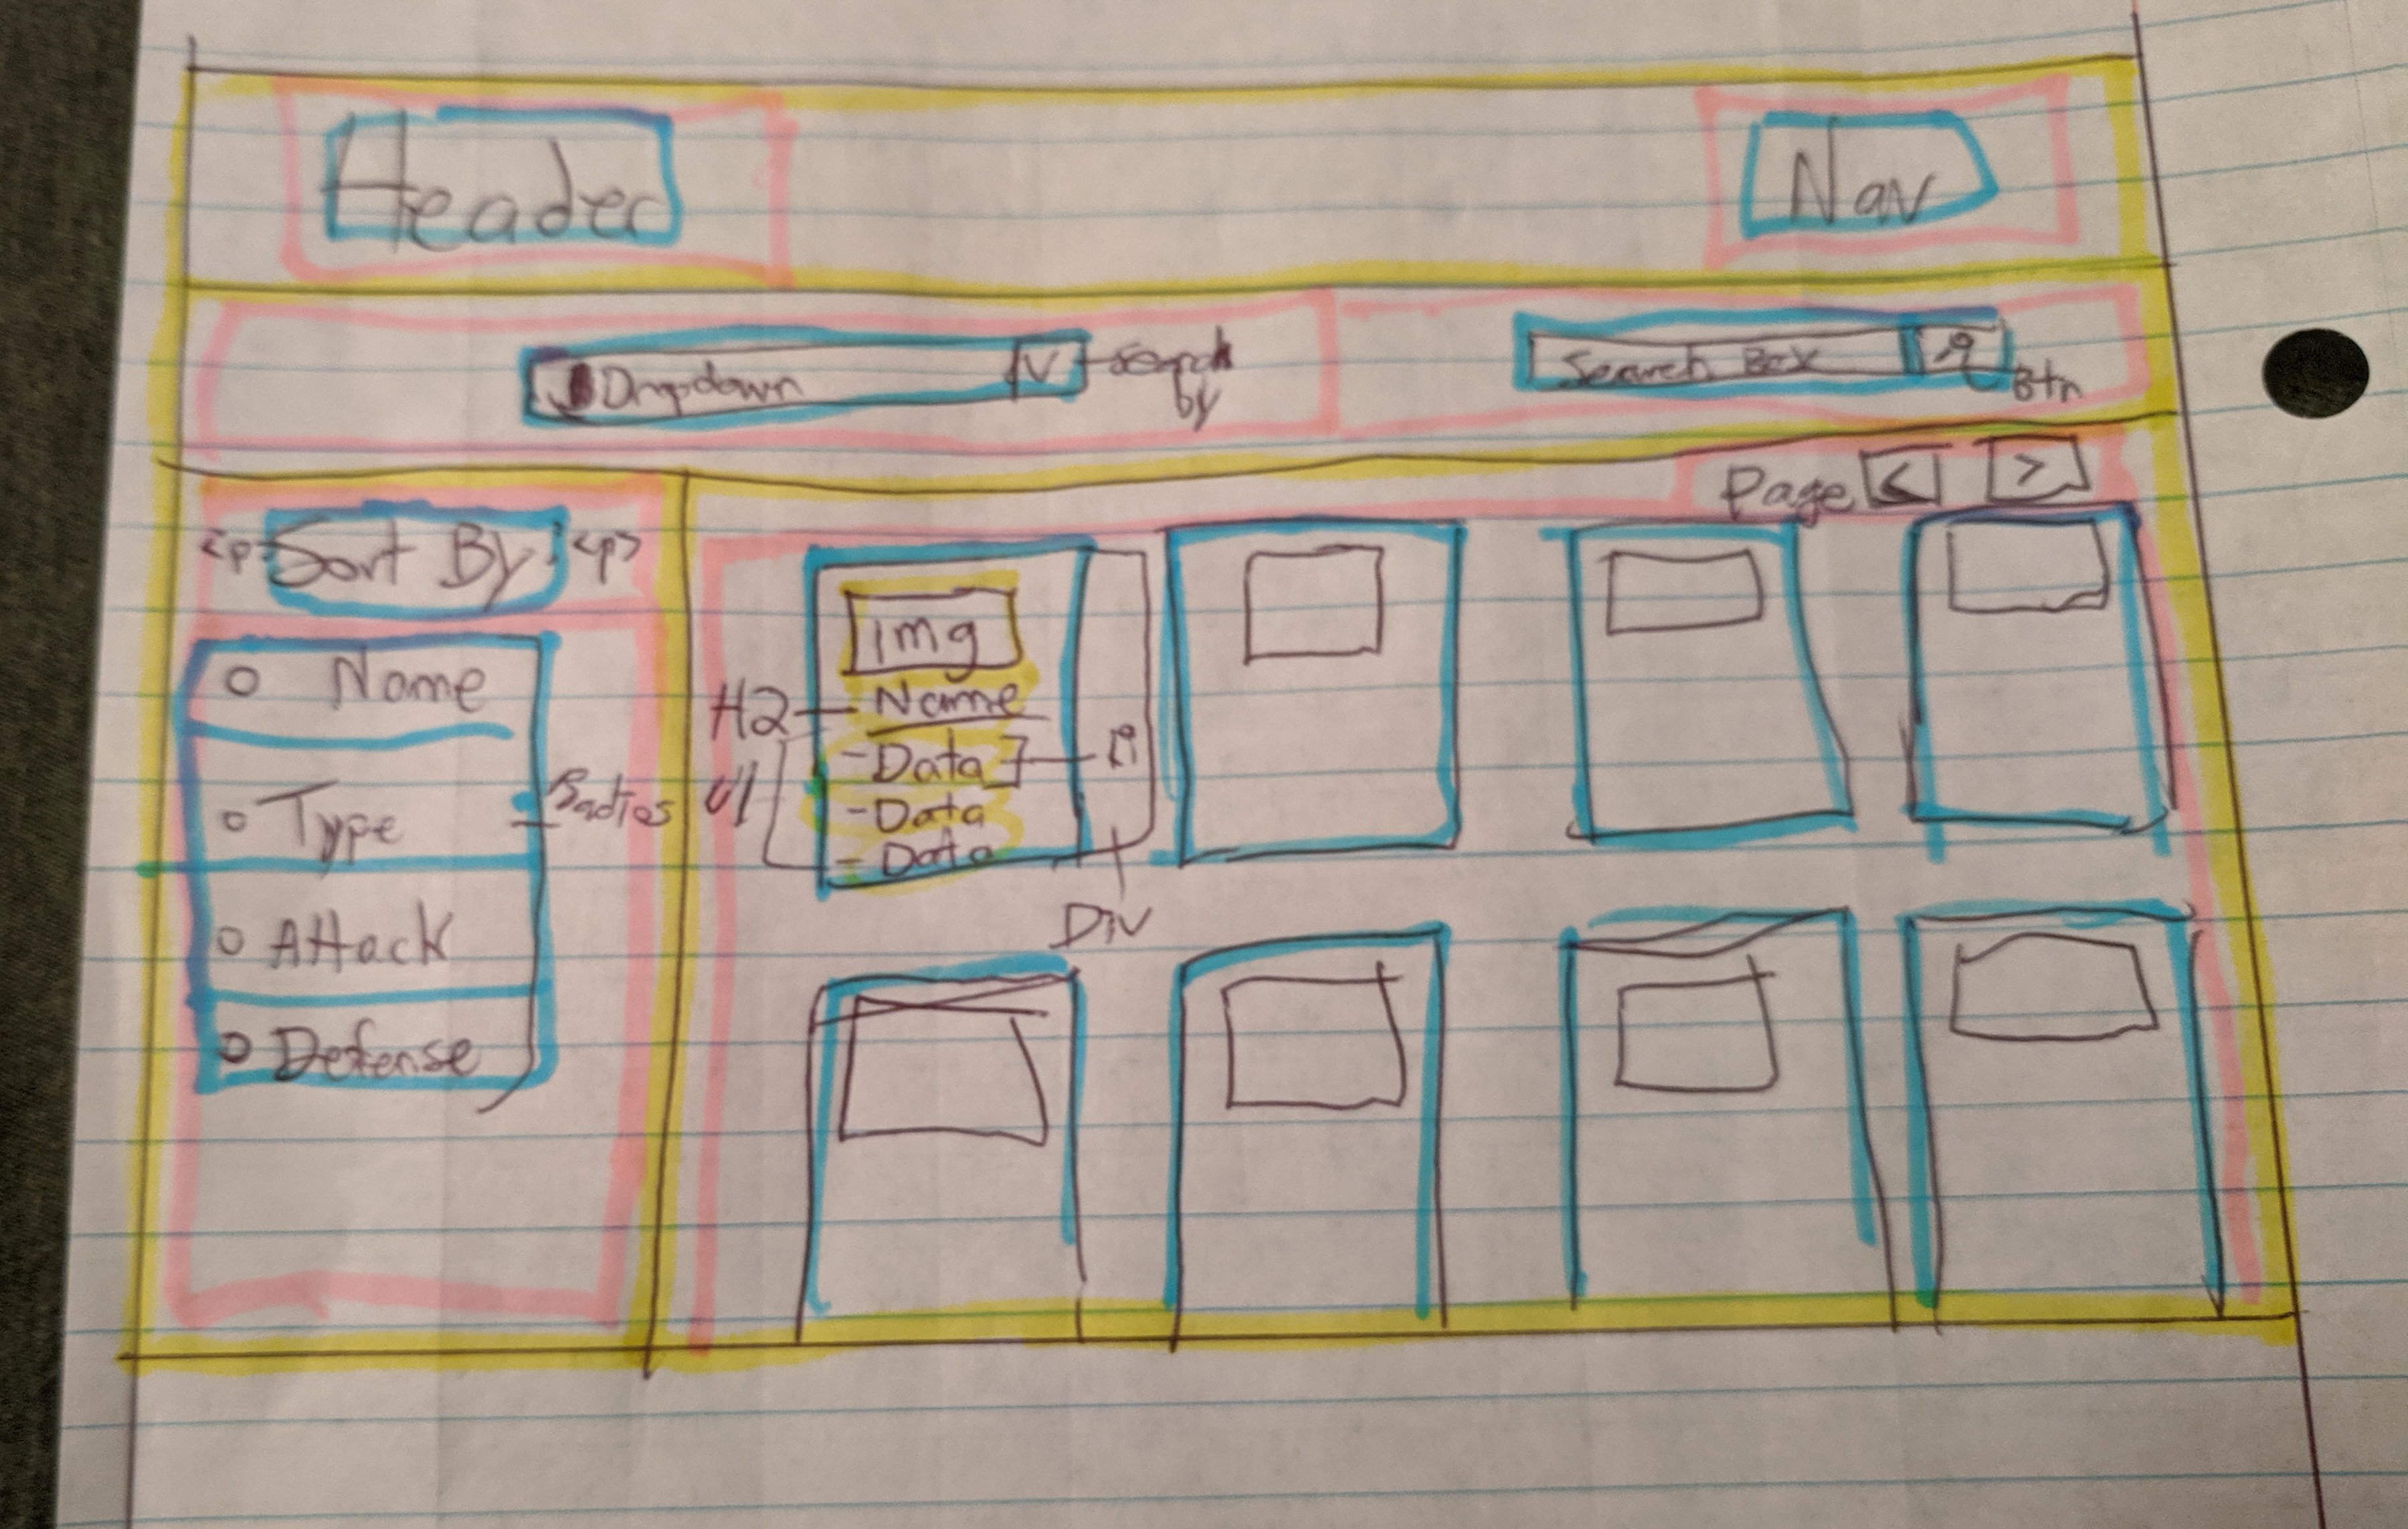 Header
Nav
Dropdown V Search by
Search Box Btn
Page < >
<p> Sort By <p>
O Name
O Type
O Attack
O Defense
Radios
img
H2 Name
Ul
- Data
- Data
- Data
li
Div